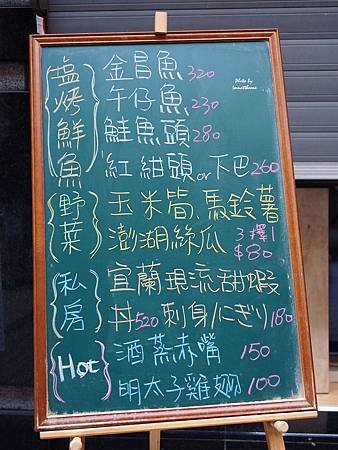 塩烤鮮魚
金昌魚 320
午仔魚 230
鮭魚頭 280
紅紺頭 or 下巴 260
野菜
玉米筍、馬鈴薯
澎湖絲瓜 3擇1 $80
私房
宜蘭現流甜蝦
丼520 刺身/にぎり180
Hot
酒蒸赤嘴 150
明太子雞翅 100
Photo by